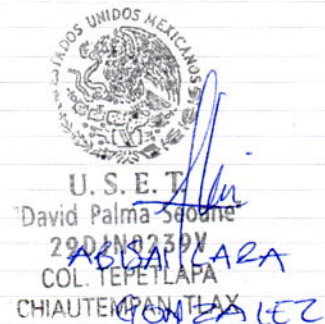 ESTADOS UNIDOS MEXICANOS
U. S. E. T.
"David Palma Seoane"
29DJN0239V
COL. TEPETLAPA
CHIAUTEMPAN TLAX
ABISAI LARA
GONZALEZ